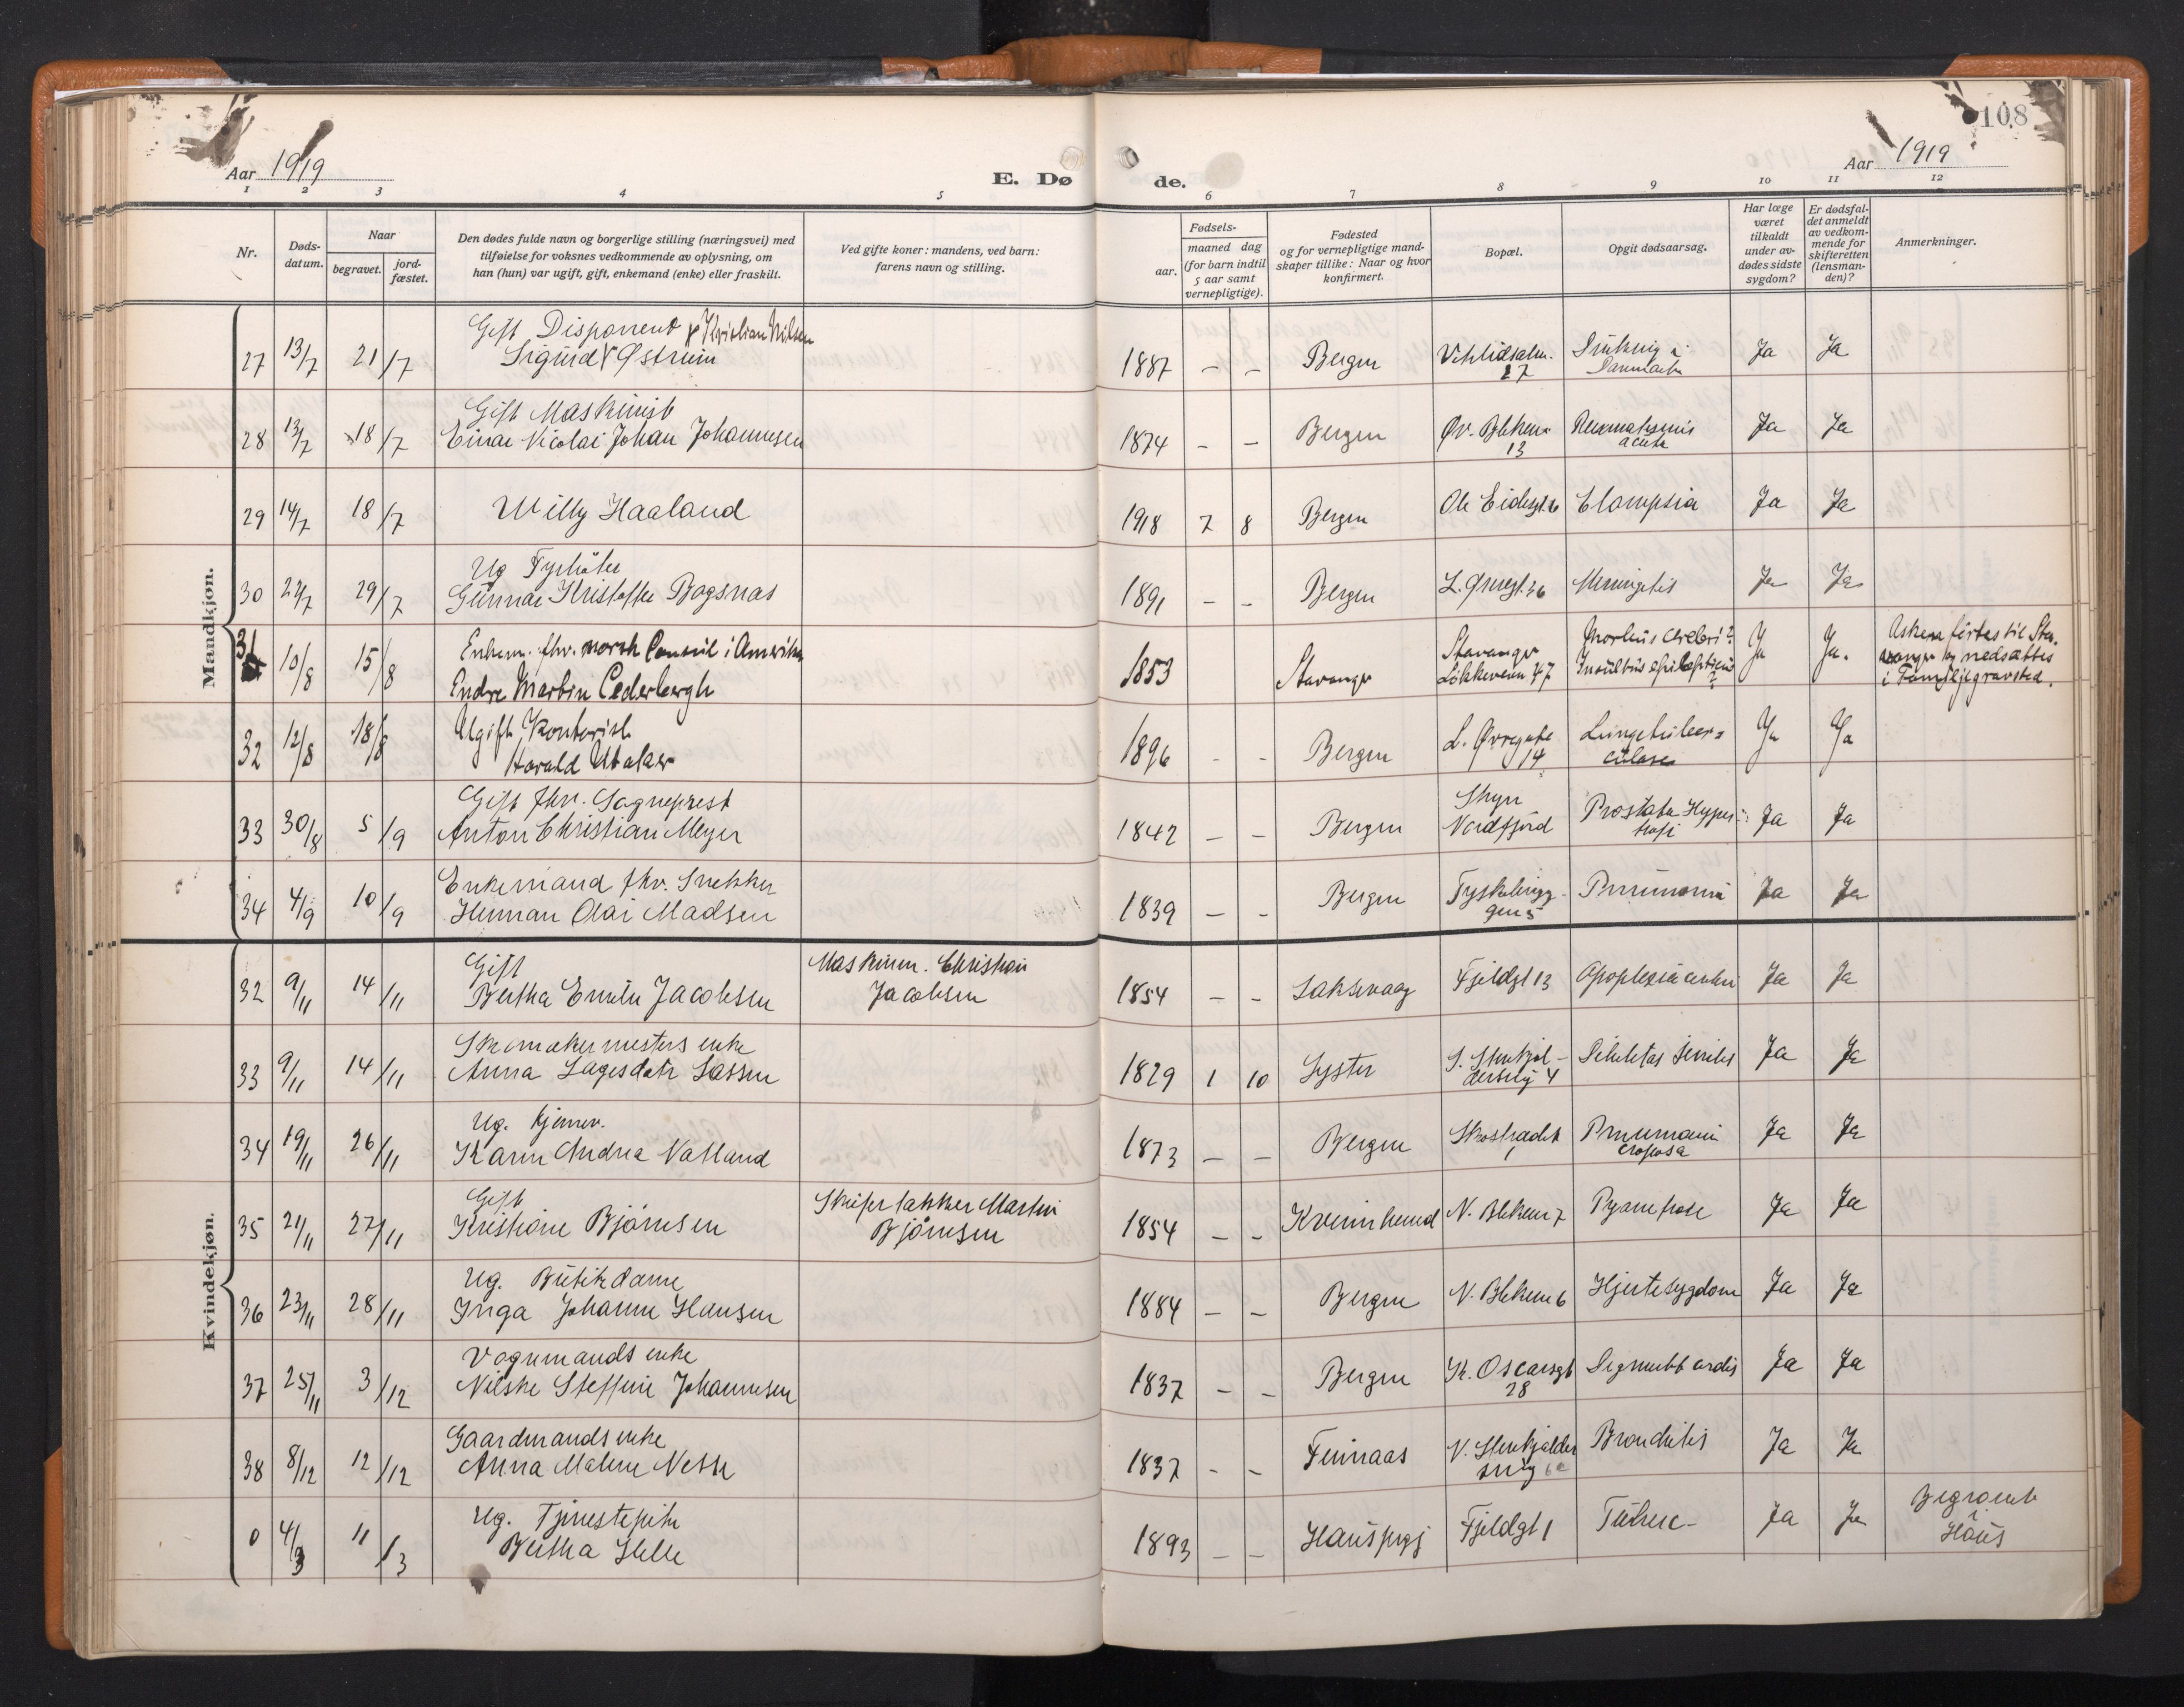 108
Aar 1919
E. Dø de.
Aar 1919
1 2 3 4 5 6 7 8 9 10 11 12
Nr.
Døds-
datum.
Naar
begravet.
jord-
fæstet.
Den dødes fulde navn og borgerlige stilling (næringsvei) med
tilføielse for voksnes vedkommende av oplysning, om
han (hun) var ugift, gift, enkemand (enke) eller fraskilt.
Ved gifte koner: mandens, ved barn:
farens navn og stilling.
Fødsels-
aar.
maaned dag
(for barn indtil
5 aar samt
vernepligtige).
Fødested
og for vernepligtige mand-
skaper tillike: Naar og hvor
konfirmert.
Bopæl.
Opgit dødsaarsag.
Har læge
været
tilkaldt
under av-
dødes sidste
sygdom?
Er dødsfal-
det anmeldt
av vedkom-
mende for
skifteretten
(lensman-
den)?
Anmerkninger.
Mandkjøn.
Gift Disponent Kristian Nilsen
27 13/7 21/7 Sigurd Østrem 1887 - - Bergen 27 Danmark Ja Ja
Gift Maskinist
28 13/7 18/7 Einar Nicolai Johan Johannesen 1874 - - Bergen Øv. Bleken 13 Reumatismus acuta Ja Ja
29 14/7 18/7 Willy Haaland 1918 7 8 Bergen Ole Eclampsia Ja Ja
Ug Fyrbøter
30 22/7 29/7 Gunnar Kristoffer Bogsnas 1891 - - Bergen L. Øvregt. 36 Meningitis Ja Ja
Enkem. fhv. norsk Consul i Amerika
31 10/8 15/8 Endre Martin Cederbergh 1853 Stavanger Stavanger Løkkeveien 47 Morbus cerebri? Insultus epilepticus? Ja Ja.
Asken førtes til Sta-
vanger og nedsættes
i Familjegravsted.
Ugift Kontorist
32 12/8 18/8 Harald Utaker 1896 - - Bergen L. Øvregate 14 Lungetuber- culose Ja Ja
Gift fhv. Sogneprest
33 30/8 5/9 Anton Christian Meyer 1842 - - Bergen Stryn Nordfjord Prostata Hyper- trofi Ja Ja
Enkemand fhv. Snekker
34 4/9 10/9 Herman Olai Madsen 1839 - - Bergen Tyskebryg- gen 5 Pneumoni Ja Ja
Kvindekjøn.
Gift Maskinm. Christian
32 9/11 14/11 Bertha Emilie Jacobsen Jacobsen 1854 - - Laksevaag Fjeldgt 13 Apoplexia cerebri Ja Ja
Skomakermesters enke
33 9/11 14/11 Anna Lagesdatr Lassen 1829 1 10 Lyster 4 Debilitas senilis Ja Ja
Ug.
34 19/11 26/11 Karen Andrea Natland 1873 - - Bergen Skostrædet 1 Pneumoni croposa Ja Ja
Gift Martin
35 21/11 27/11 Kristiane Bjørnsen Bjørnsen 1854 - - N. Bleken 7 Ja Ja
Ug. Butikdame
36 23/11 28/11 Inga Johanne Hansen 1884 - - Bergen N. Bleken 6 Hjertesygdom Ja Ja
Vognmands enke
37 25/11 3/12 Nilske Steffine Johannesen 1837 - - Bergen K. Oscarsgt 28 Ja Ja
Gaardmands enke
38 8/12 12/12 Anna Malene Nesse 1837 - - Finnaas N. Stenkjelder smug 6c Bronchitis Ja Ja
Ug. Tjenestepike
0 4/3 11/3 Bertha Helle 1893 - - Hauspgj Fjeldgt 1 Tuberc- Ja Ja
Begravet
i
Haus